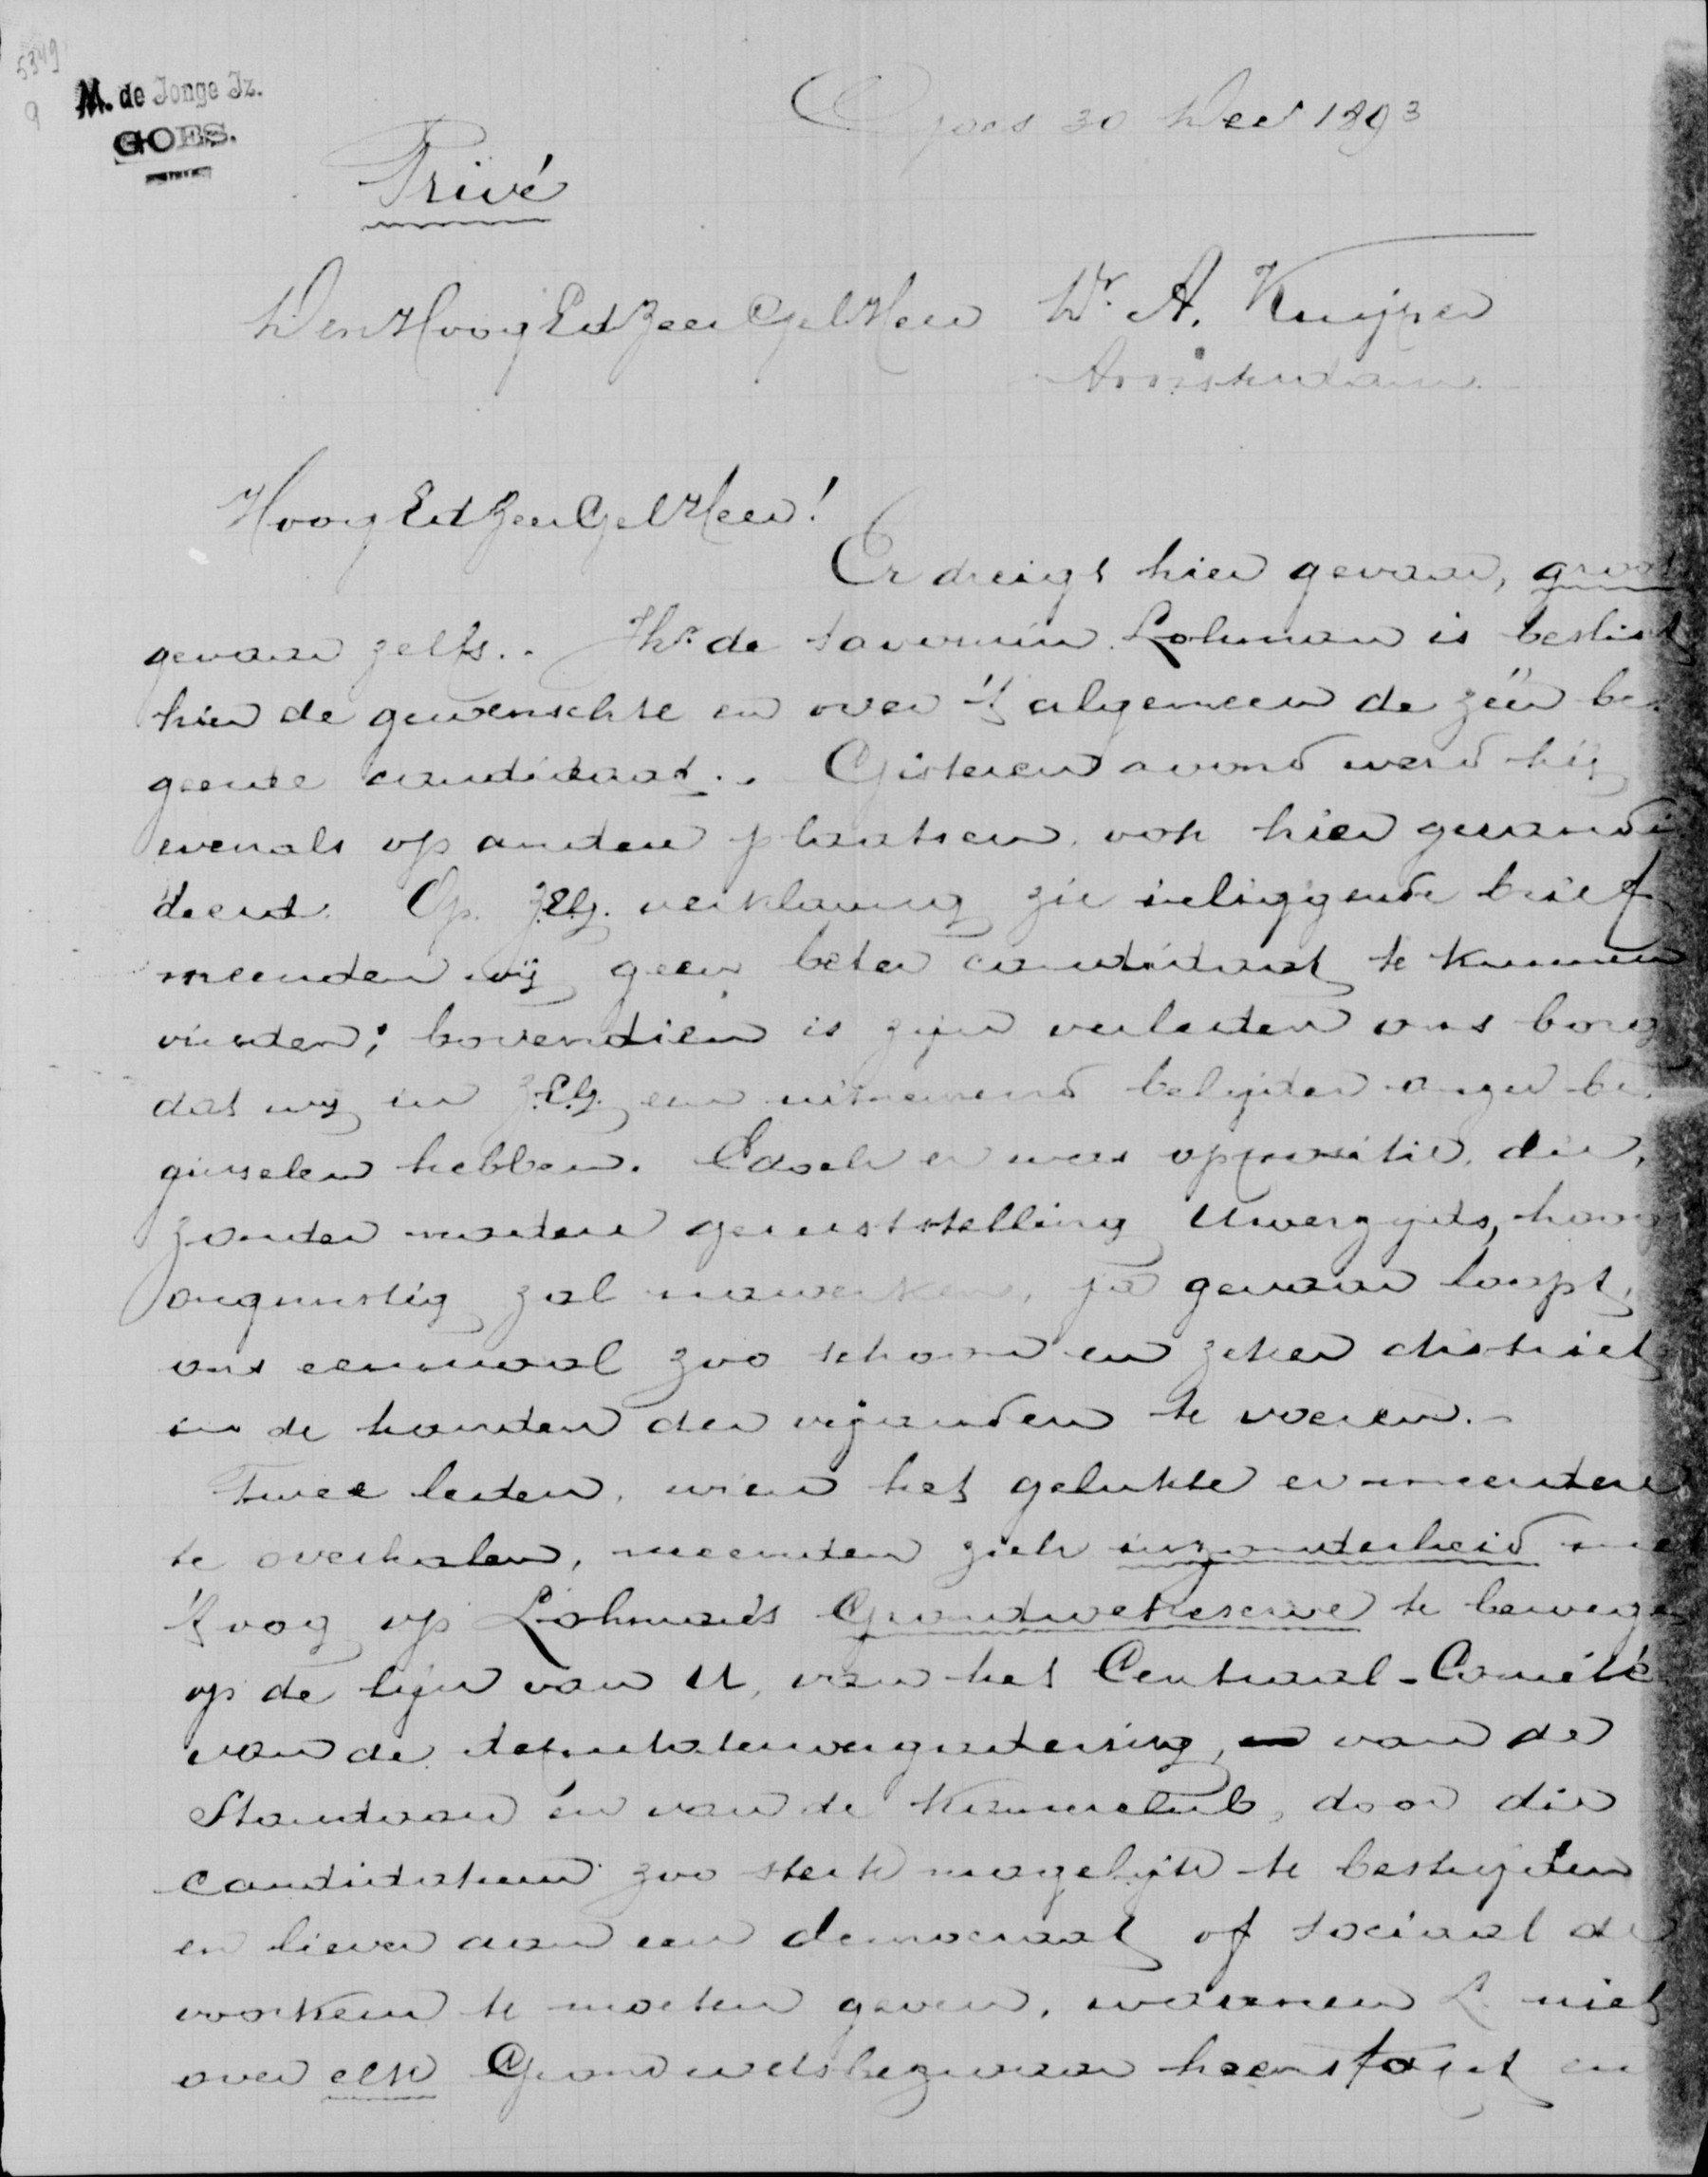 5349
9
M. de Jonge Jz.
GOES.
Goes 30 Dec 1893
Privé
Den HoogEd Zeer Gel Heer Dr. A. Kuijper
Amsterdam.
HoogEd Zeer Gel Heer!
Er dreigt hier gevaar, groot
gevaar zelfs.. Jhr. de Savornin Lohman is beslist
hier de gewenschte en over 't algemeen de zéér be-
geerde candidaat.. Gisteren avond werd hij
evenals op andere plaatsen, ook hier gecandi
deerd. Op Z.E.G. verklaring zie inliggende brief
meenden wij geen beter candidaat te kunnen
vinden; bovendien is zijn verleden ons borg
dat wij in Z.E.G. een uitnemend belijder onzer be-
ginselen hebben. Edoch er was oppositie, die,
zonder nadere geruststelling Uwerzijds, hoog
ongunstig zal nawerken, ja gevaar loopt,
ons eenmaal zoo schoon en zeker district
in de handen der vijanden te voeren.-
Twee leden, wien het gelukte er meerdere
te overhalen, meenden zich inzonderheid met
't oog op Lohman's Grondwetreserve te bewegen
op de lijn van U, van het Centraal-Comité
van de deputatenvergadering, van de
Standaard én van de Kamerclub, door die
candidatuur zoo sterk mogelijk te bestrijden
en liever aan een democraat of sociaal de
voorkeur te moeten geven, wanneer L. niet
over elk Grondwetsbezwaar heenstapt en